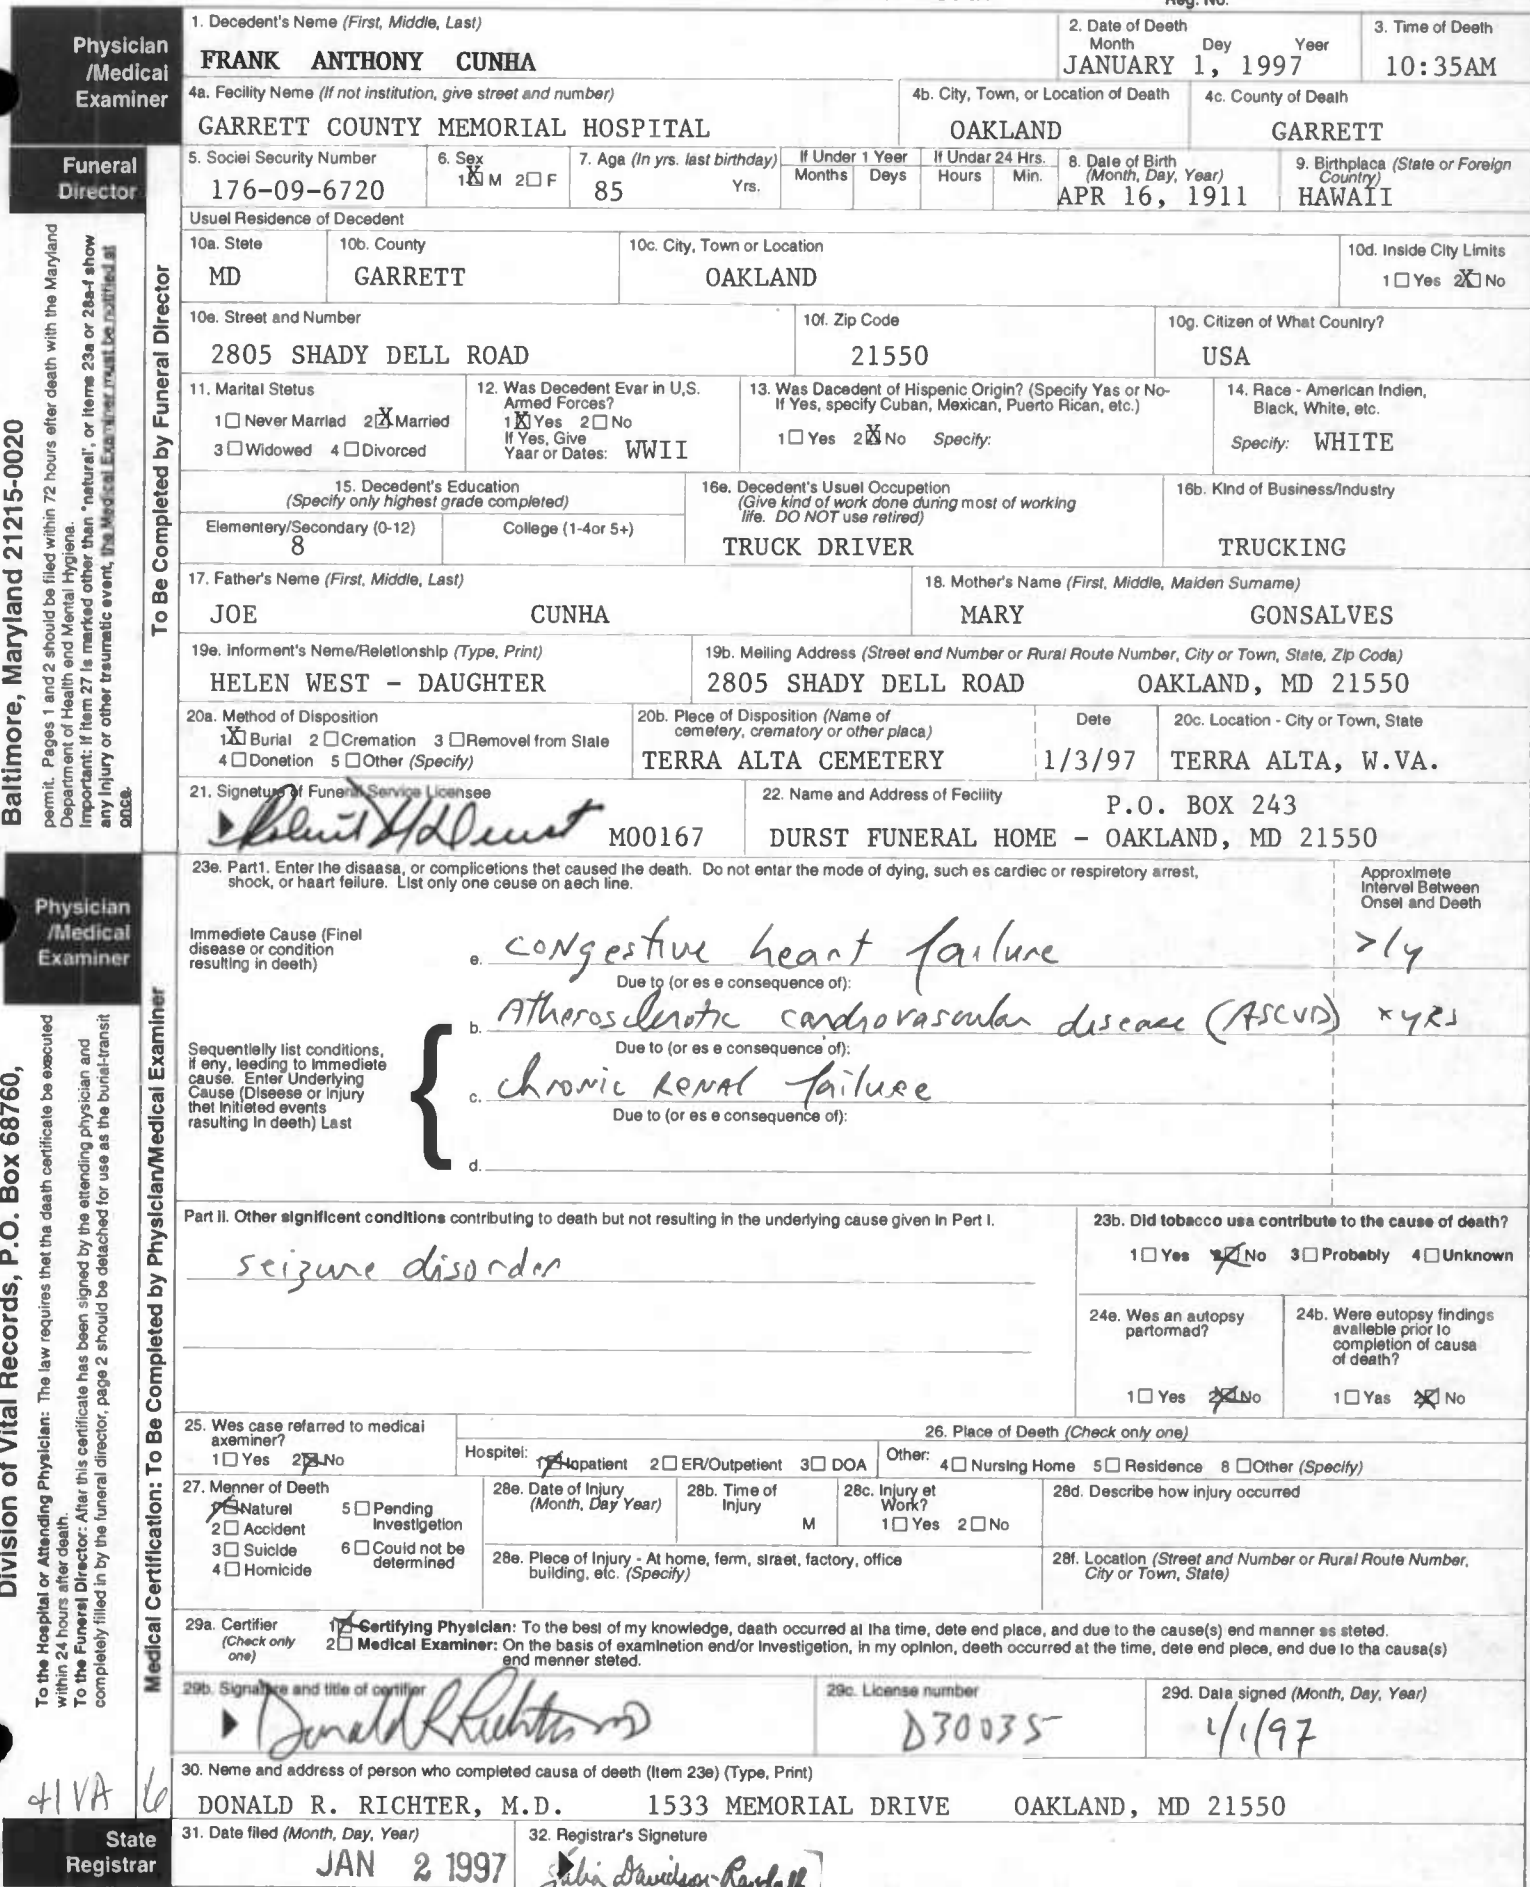 Reg. No.
Physician
/Medical
Examiner
1. Decedent's Name (First, Middle, Last)
FRANK ANTHONY CUNHA
2. Date of Death
Month Day Year
JANUARY 1, 1997
3. Time of Death
10:35AM
4a. Facility Name (If not institution, give street and number)
GARRETT COUNTY MEMORIAL HOSPITAL
4b. City, Town, or Location of Death
OAKLAND
4c. County of Death
GARRETT
Funeral
Director
5. Social Security Number
176-09-6720
6. Sex
1 X M 2 □ F
7. Age (In yrs. last birthday)
85 Yrs.
If Under 1 Year
Months Days
If Under 24 Hrs.
Hours Min.
8. Date of Birth
(Month, Day, Year)
APR 16, 1911
9. Birthplace (State or Foreign
Country)
HAWAII
Usual Residence of Decedent
10a. State
MD
10b. County
GARRETT
10c. City, Town or Location
OAKLAND
10d. Inside City Limits
1 □ Yes 2 X No
10e. Street and Number
2805 SHADY DELL ROAD
10f. Zip Code
21550
10g. Citizen of What Country?
USA
11. Marital Status
1 □ Never Married 2 X Married
3 □ Widowed 4 □ Divorced
12. Was Decedent Ever in U.S.
Armed Forces?
1 X Yes 2 □ No
If Yes, Give
Year or Dates: WWII
13. Was Decedent of Hispanic Origin? (Specify Yes or No-
If Yes, specify Cuban, Mexican, Puerto Rican, etc.)
1 □ Yes 2 X No Specify:
14. Race - American Indian,
Black, White, etc.
Specify: WHITE
15. Decedent's Education
(Specify only highest grade completed)
Elementary/Secondary (0-12)
8
College (1-4or 5+)
16a. Decedent's Usual Occupation
(Give kind of work done during most of working
life. DO NOT use retired)
TRUCK DRIVER
16b. Kind of Business/Industry
TRUCKING
17. Father's Name (First, Middle, Last)
JOE CUNHA
18. Mother's Name (First, Middle, Maiden Surname)
MARY GONSALVES
19a. Informant's Name/Relationship (Type, Print)
HELEN WEST - DAUGHTER
19b. Mailing Address (Street and Number or Rural Route Number, City or Town, State, Zip Code)
2805 SHADY DELL ROAD OAKLAND, MD 21550
20a. Method of Disposition
1 X Burial 2 □ Cremation 3 □ Removal from State
4 □ Donation 5 □ Other (Specify)
20b. Place of Disposition (Name of
cemetery, crematory or other place)
TERRA ALTA CEMETERY
Date
1/3/97
20c. Location - City or Town, State
TERRA ALTA, W.VA.
21. Signature of Funeral Service Licensee
M00167
22. Name and Address of Facility
P.O. BOX 243
DURST FUNERAL HOME - OAKLAND, MD 21550
To Be Completed by Funeral Director
Baltimore, Maryland 21215-0020
permit. Pages 1 and 2 should be filed within 72 hours after death with the Maryland
Department of Health and Mental Hygiene.
Important: If item 27 is marked other than "natural", or items 23a or 28a-f show
any injury or other traumatic event, the Medical Examiner must be notified at
once.
Physician
/Medical
Examiner
23a. Part1. Enter the disease, or complications that caused the death. Do not enter the mode of dying, such as cardiac or respiratory arrest,
shock, or heart failure. List only one cause on each line.
Approximate
Interval Between
Onset and Death
Immediate Cause (Final
disease or condition
resulting in death)
a. congestive heart failure >1y
Due to (or as a consequence of):
b. Atherosclerotic cardiovascular disease (ASCVD) x yrs
Due to (or as a consequence of):
c. chronic renal failure
Due to (or as a consequence of):
d.
Sequentially list conditions,
if any, leading to immediate
cause. Enter Underlying
Cause (Disease or Injury
that initiated events
resulting in death) Last
Part II. Other significant conditions contributing to death but not resulting in the underlying cause given in Part I.
seizure disorder
23b. Did tobacco use contribute to the cause of death?
1 □ Yes 2 X No 3 □ Probably 4 □ Unknown
24a. Was an autopsy
performed?
1 □ Yes 2 X No
24b. Were autopsy findings
available prior to
completion of cause
of death?
1 □ Yes 2 X No
25. Was case referred to medical
examiner?
1 □ Yes 2 X No
26. Place of Death (Check only one)
Hospital: 1 X Inpatient 2 □ ER/Outpatient 3 □ DOA
Other: 4 □ Nursing Home 5 □ Residence 8 □ Other (Specify)
27. Manner of Death
1 X Natural 5 □ Pending
Investigation
2 □ Accident
3 □ Suicide 6 □ Could not be
determined
4 □ Homicide
28a. Date of Injury
(Month, Day Year)
28b. Time of
Injury
M
28c. Injury at
Work?
1 □ Yes 2 □ No
28d. Describe how injury occurred
28e. Place of Injury - At home, farm, street, factory, office
building, etc. (Specify)
28f. Location (Street and Number or Rural Route Number,
City or Town, State)
29a. Certifier
(Check only
one)
1 X Certifying Physician: To the best of my knowledge, death occurred at the time, date and place, and due to the cause(s) and manner as stated.
2 □ Medical Examiner: On the basis of examination and/or investigation, in my opinion, death occurred at the time, date and place, and due to the cause(s)
and manner stated.
29b. Signature and title of certifier
Donald R Richter MD
29c. License number
D30035
29d. Date signed (Month, Day, Year)
1/1/97
30. Name and address of person who completed cause of death (Item 23a) (Type, Print)
DONALD R. RICHTER, M.D. 1533 MEMORIAL DRIVE OAKLAND, MD 21550
Medical Certification: To Be Completed by Physician/Medical Examiner
Division of Vital Records, P.O. Box 68760,
To the Hospital or Attending Physician: The law requires that the death certificate be executed
within 24 hours after death.
To the Funeral Director: After this certificate has been signed by the attending physician and
completely filled in by the funeral director, page 2 should be detached for use as the burial-transit
State
Registrar
31. Date filed (Month, Day, Year)
JAN 2 1997
32. Registrar's Signature
Julia Davidson-Randall